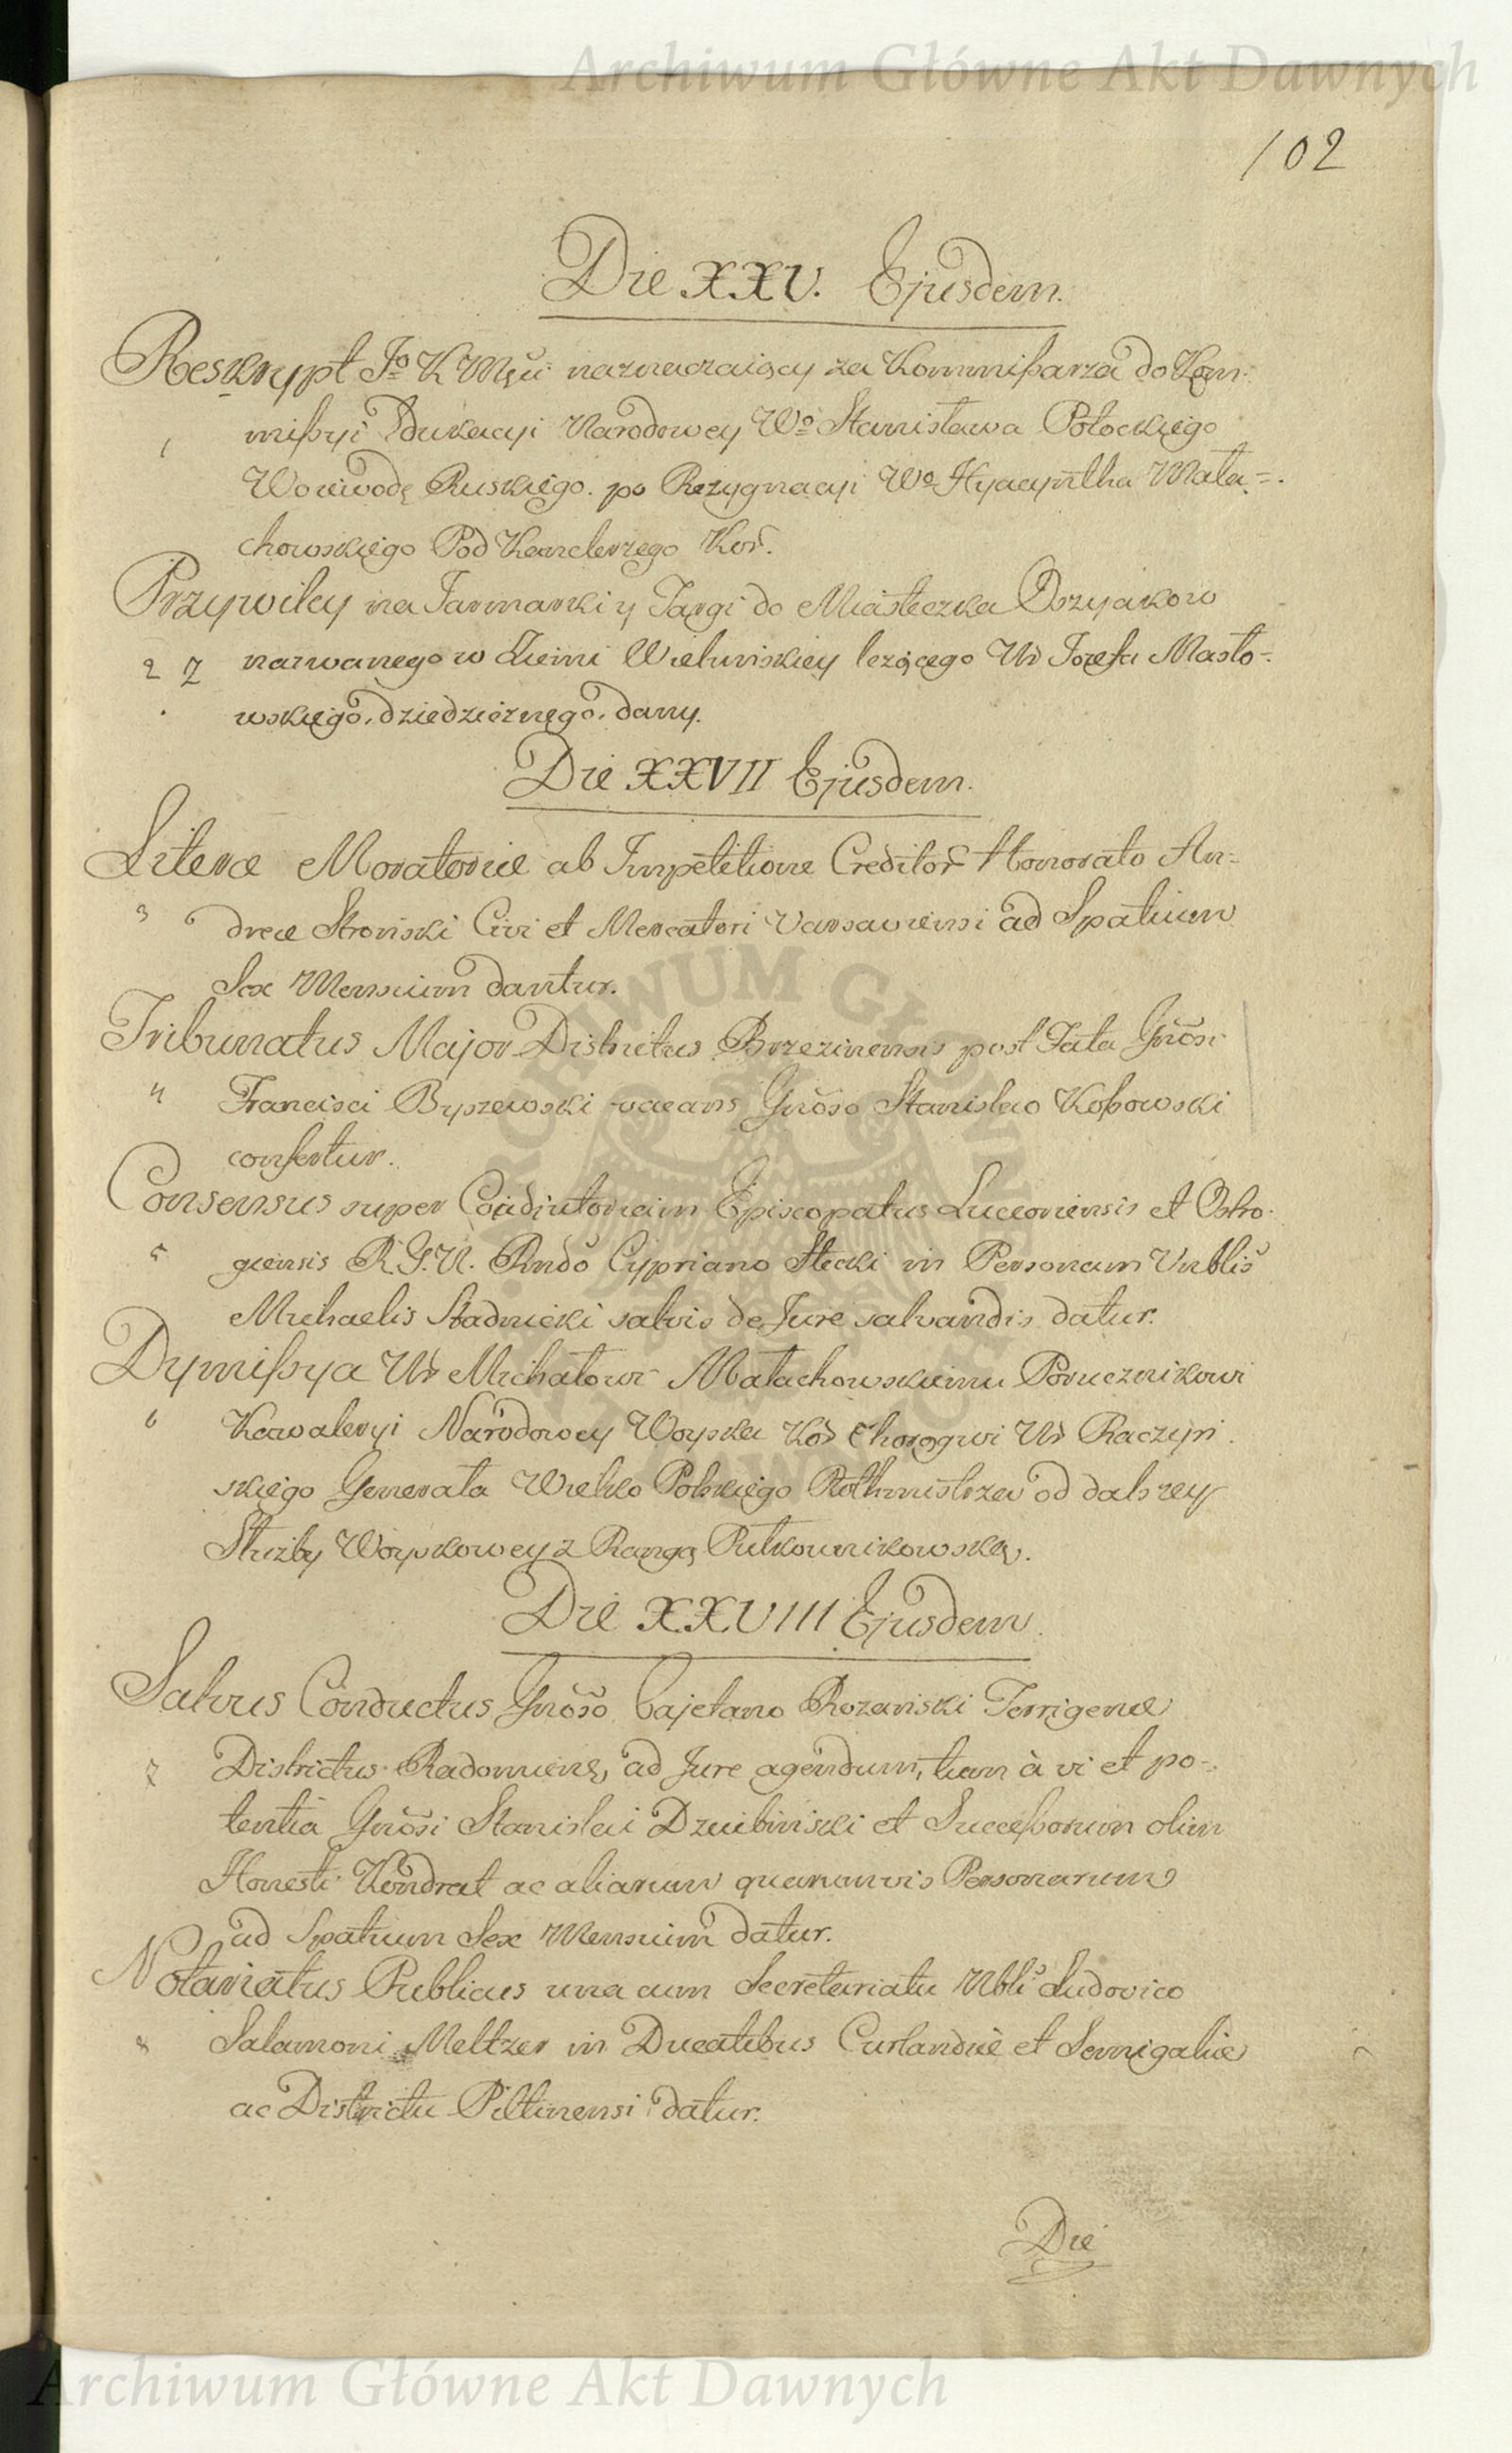 Archiwum Główne Akt Dawnych
102
Die XXV. Ejusdem.
Reskrypt Jo K Mści naznaczaiący za Kommißarza do Kom:
1 mißyi Edukacyi Narodowey Wo Stanisława Potockiego
Woiewodę Ruskiego. po Rezygnacyi Wo Hyacyntha Mała=
chowskiego Pod Kanclerzego Kor.
Przywiley na Jarmarki y Targi do Miasteczka Osyakow
2 nazwanego w Ziemi Wieluńskiey lezącego Ur Jozefa Masło-
wskiego, dziedzicznego, dany.
Die XXVII Ejusdem.
Literæ Moratoriæ ab Impetitione Creditor Honorato An=
3 dreæ Stroński Civi et Mercatori Varsaviensi ad Spatium
Sex Mensium dantur.
Tribunatus Major Districtus Brzezinensis post Fata Gnosi
4 Francisci Byszewski vacans Gnoso Stanislao Kossowski
confertur.
Consensus super Coadiutoriam Episcopatus Luceoriensis et Ostro-
5 giensis R. G. U. Rndo Cypriano Stecki in Personam Vnblis
Michaelis Stadnicki salvis de Jure salvandis datur.
Dymißya Ur Michałowi Małachowskiemu Porucznikowi
6 Kawaleryi Narodowey Woyska Kor Chorągwi Ur Raczyń
skiego Generała Wielko Polskiego Rothmistrza od dalszey
Służby Woyskowey z Rangą Pułkownikowską.
Die XXVIII Ejusdem.
Salvus Conductus Gnoso Cajetano Rozański Terrigenæ
7 Districtus Radomiens, ad Jure agendum, tum à vi et po-
tentia Gnosi Stanislai Dziubiński et Succeßorum olim
Honesti Kondrat ac aliarum quarumvis Personarum
ad Spatium Sex Mensium datur.
Notariatus Publicus una cum Secretariatu Nbli Ludovico
8 Salamoni Meltzer in Ducatibus Curlandiæ et Semigaliæ
ac Districtu Piltinensi datur.
Die
Archiwum Główne Akt Dawnych